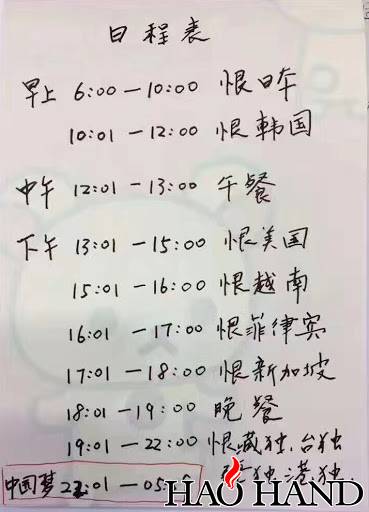 日程表
早上 6:00—10:00 恨日本
10:01—12:00 恨韩国
中午 12:01—13:00 午餐
下午 13:01—15:00 恨美国
15:01—16:00 恨越南
16:01—17:00 恨菲律宾
17:01—18:00 恨新加坡
18:01—19:00 晚餐
19:01—22:00 恨藏独.台独
独.港独.
中国梦 22:01—05:
HAO HAND